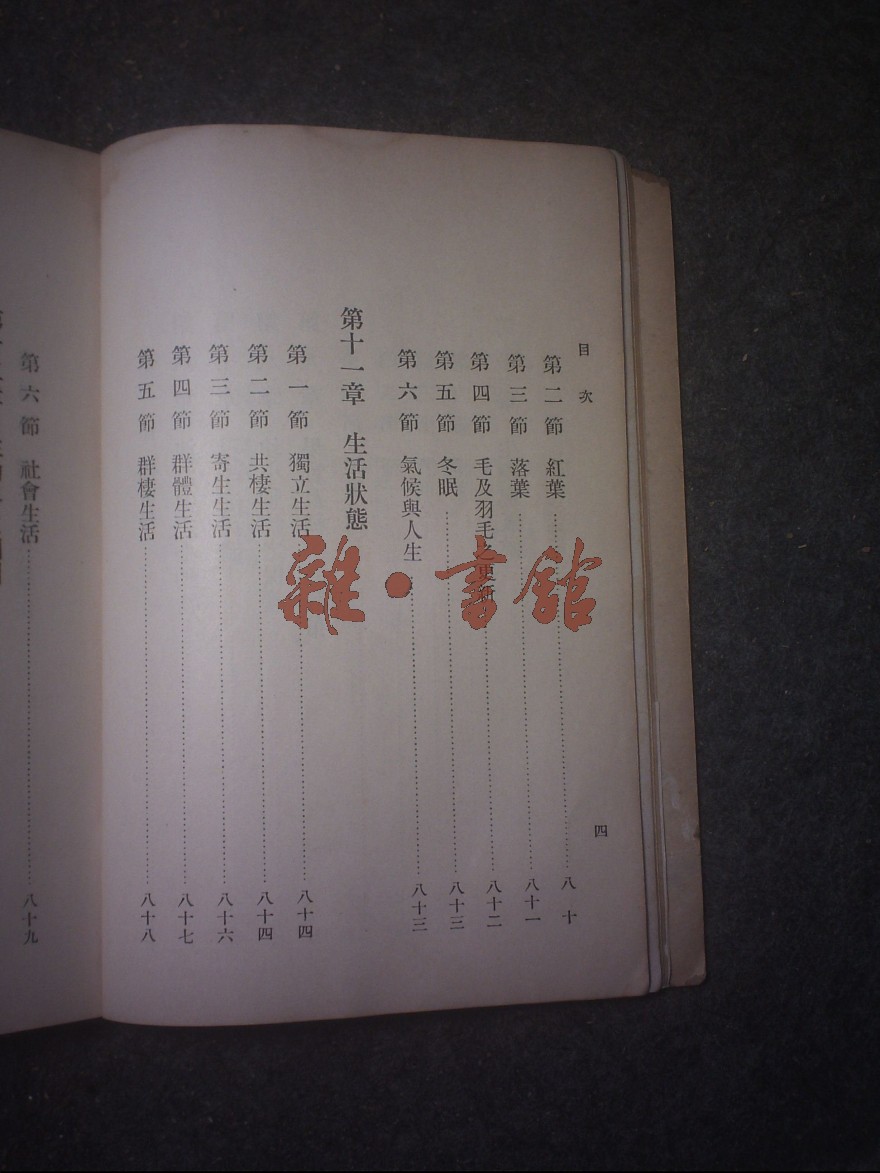 目次
四
第二節 紅葉……八十
第三節 落葉……八十一
第四節 毛及羽毛之更新……八十二
第五節 冬眠……八十三
第六節 氣候與人生……八十三
第十一章 生活狀態
第一節 獨立生活……八十四
第二節 共棲生活……八十四
第三節 寄生生活……八十六
第四節 群體生活……八十七
第五節 群棲生活……八十八
第六節 社會生活……八十九
雜·書館